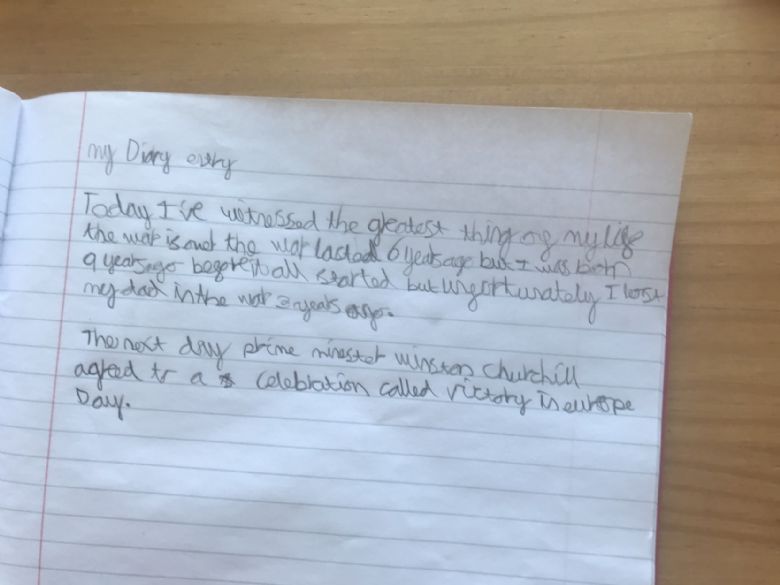 my Diary entry
Today I've witnessed the greatest thing of my life
the war is over the war lasted 6 years ago but I was born
9 years ago before it all started but unfortunately I lost
my dad in the war 3 years ago.
The next day prime minester winston churchill
agreed to a celebration called victory in europe
Day.